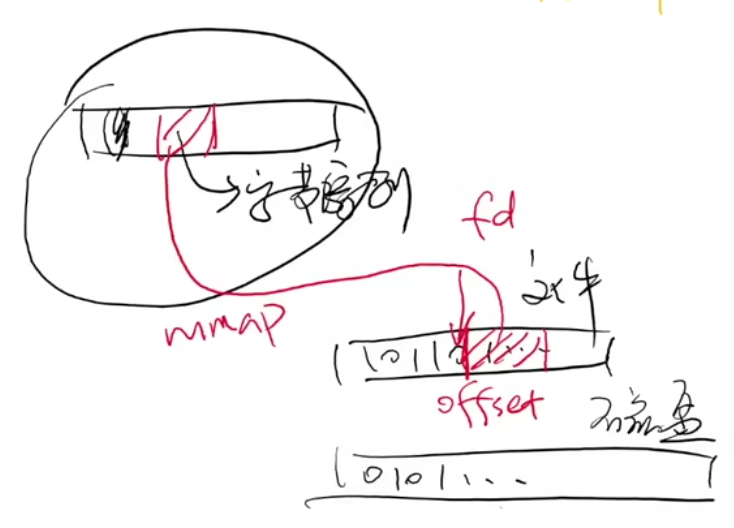 字节序列
fd
文件
mmap
101101...
offset
磁盘
0101...